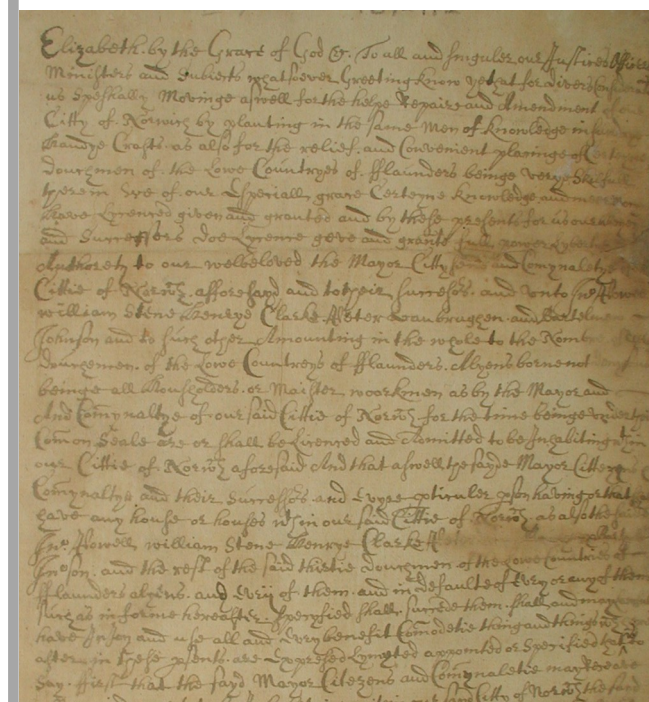 Elizabeth. by the Grace of God &c. To all and singuler our Justices Officers
Ministers and Subiects whatsoever Greeting Know ye that for divers
us Speshally Movinge aswell for the helpe Repaire and Amendment of
Citty of Norwich by planting in the same Men of Knowledge in
handye Crafts. as also for the relief. and Convenient placinge of Certeyne
douchmen of. the Lowe Countryes of. fflaunders beinge very Skilfull
therein Wee of. our Especiall grace Certeyne Knowledge and
have Lycenced given and granted and by these presents for us our
and Successors doe Lycence geve and graunte full power Lyberty
Authorety to our welbeloved the Mayor and Comynaltye
Cittie of Norwch. afforesayd and to their Successors. and unto
William Stene Henrye Clarke. Peter van brughen. and
Johnson and to such other Amounting in the whole to the Nombre of
douchemen. of the Lowe Countreys of fflaunders. Alyens borne not
beinge all Housholders. or Maister woorkmen as by the Mayor and
And Comynaltye of our said Cittie of Norwch for the time beinge under
Comon Seale are or shall be Licenced and Admitted to be Inhabiting
our Cittie of. Norwch aforesaid And that aswell the sayde Mayor
Comynaltye and their Successors. and Every pticuler pson having or that
have any house or houses wthin our said Cittie of Norwch as also the
Jno. Powell William Stene Henrye Clarke
Jnoson. and the rest of the said thirtie douchmen of the Lowe Countries of
fflaunders alyens. and every of them. and in defaulte of Every or any of them
such as in forme hereafter. Specyfied shall. succede them. shall and may
have Injoy and use all and Every benefit Comodetie thing and things
after in these psents. are Expressed Lymeted appointed or Specified
Say. first that the sayd Mayor Citezens and Comynaletie may
Citty of Norwch the said